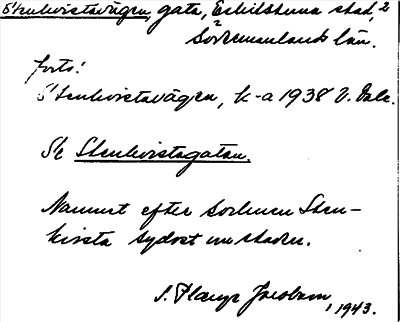 Stenkvistavägen, gata, Eskilstuna stad, 2
Södermanlands län.
forts!
Stenkvistavägen, k-a 1938
Se Stenkvistagatan.
Namnet efter socknen Sten-
kvista sydost om staden.
S. Jacobson, 1943.